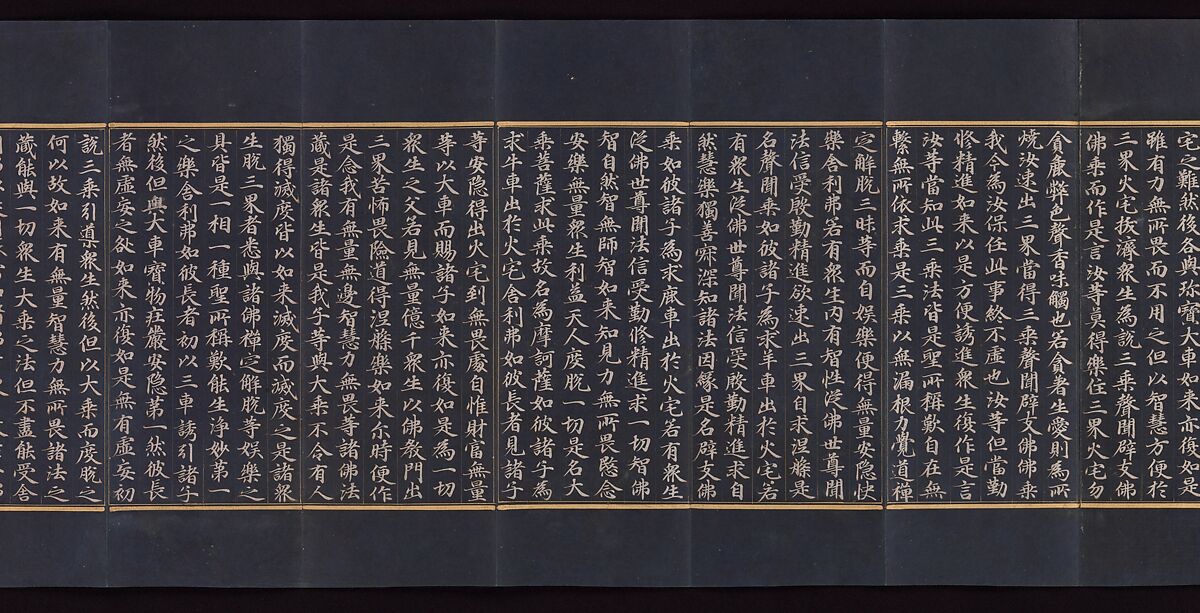 宅之難然後各與珎寶大車如来亦復如是
雖有力無所畏而不用之但以智慧方便於
三界火宅拔濟衆生為說三乘聲聞辟支佛
佛乘而作是言汝等莫得樂住三界火宅勿
貪麁弊色聲香味觸也若貪著生愛則為所
燒汝速出三界當得三乘聲聞辟支佛佛乘
我今為汝保任此事終不虛也汝等但當勤
修精進如来以是方便誘進衆生復作是言
汝等當知此三乘法皆是聖所稱歎自在無
繫無所依求乘是三乘以無漏根力覺道禪
定解脫三昧等而自娛樂便得無量安隱快
樂舍利弗若有衆生内有智性從佛世尊聞
法信受殷勤精進欲速出三界自求涅槃是
名聲聞乘如彼諸子為求羊車出於火宅若
有衆生從佛世尊聞法信受殷勤精進求自
然慧樂獨善寂深知諸法因緣是名辟支佛
乘如彼諸子為求鹿車出於火宅若有衆生
從佛世尊聞法信受勤修精進求一切智佛
智自然智無師智如来知見力無所畏愍念
安樂無量衆生利益天人度脫一切是名大
乘菩薩求此乘故名為摩訶薩如彼諸子為
求牛車出於火宅舍利弗如彼長者見諸子
等安隱得出火宅到無畏處自惟財富無量
等以大車而賜諸子如来亦復如是為一切
衆生之父若見無量億千衆生以佛教門出
三界苦怖畏險道得涅槃樂如来尓時便作
是念我有無量無邊智慧力無畏等諸佛法
藏是諸衆生皆是我子等與大乘不令有人
獨得滅度皆以如来滅度而滅度之是諸衆
生脫三界者悉與諸佛禪定解脫等娛樂之
具皆是一相一種聖所稱歎能生淨妙第一
之樂舍利弗如彼長者初以三車誘引諸子
然後但與大車寶物莊嚴安隱第一然彼長
者無虛妄之咎如来亦復如是無有虛妄初
說三乘引導衆生然後但以大乘而度脫之
何以故如来有無量智慧力無所畏諸法之
藏能與一切衆生大乘之法但不盡能受舍